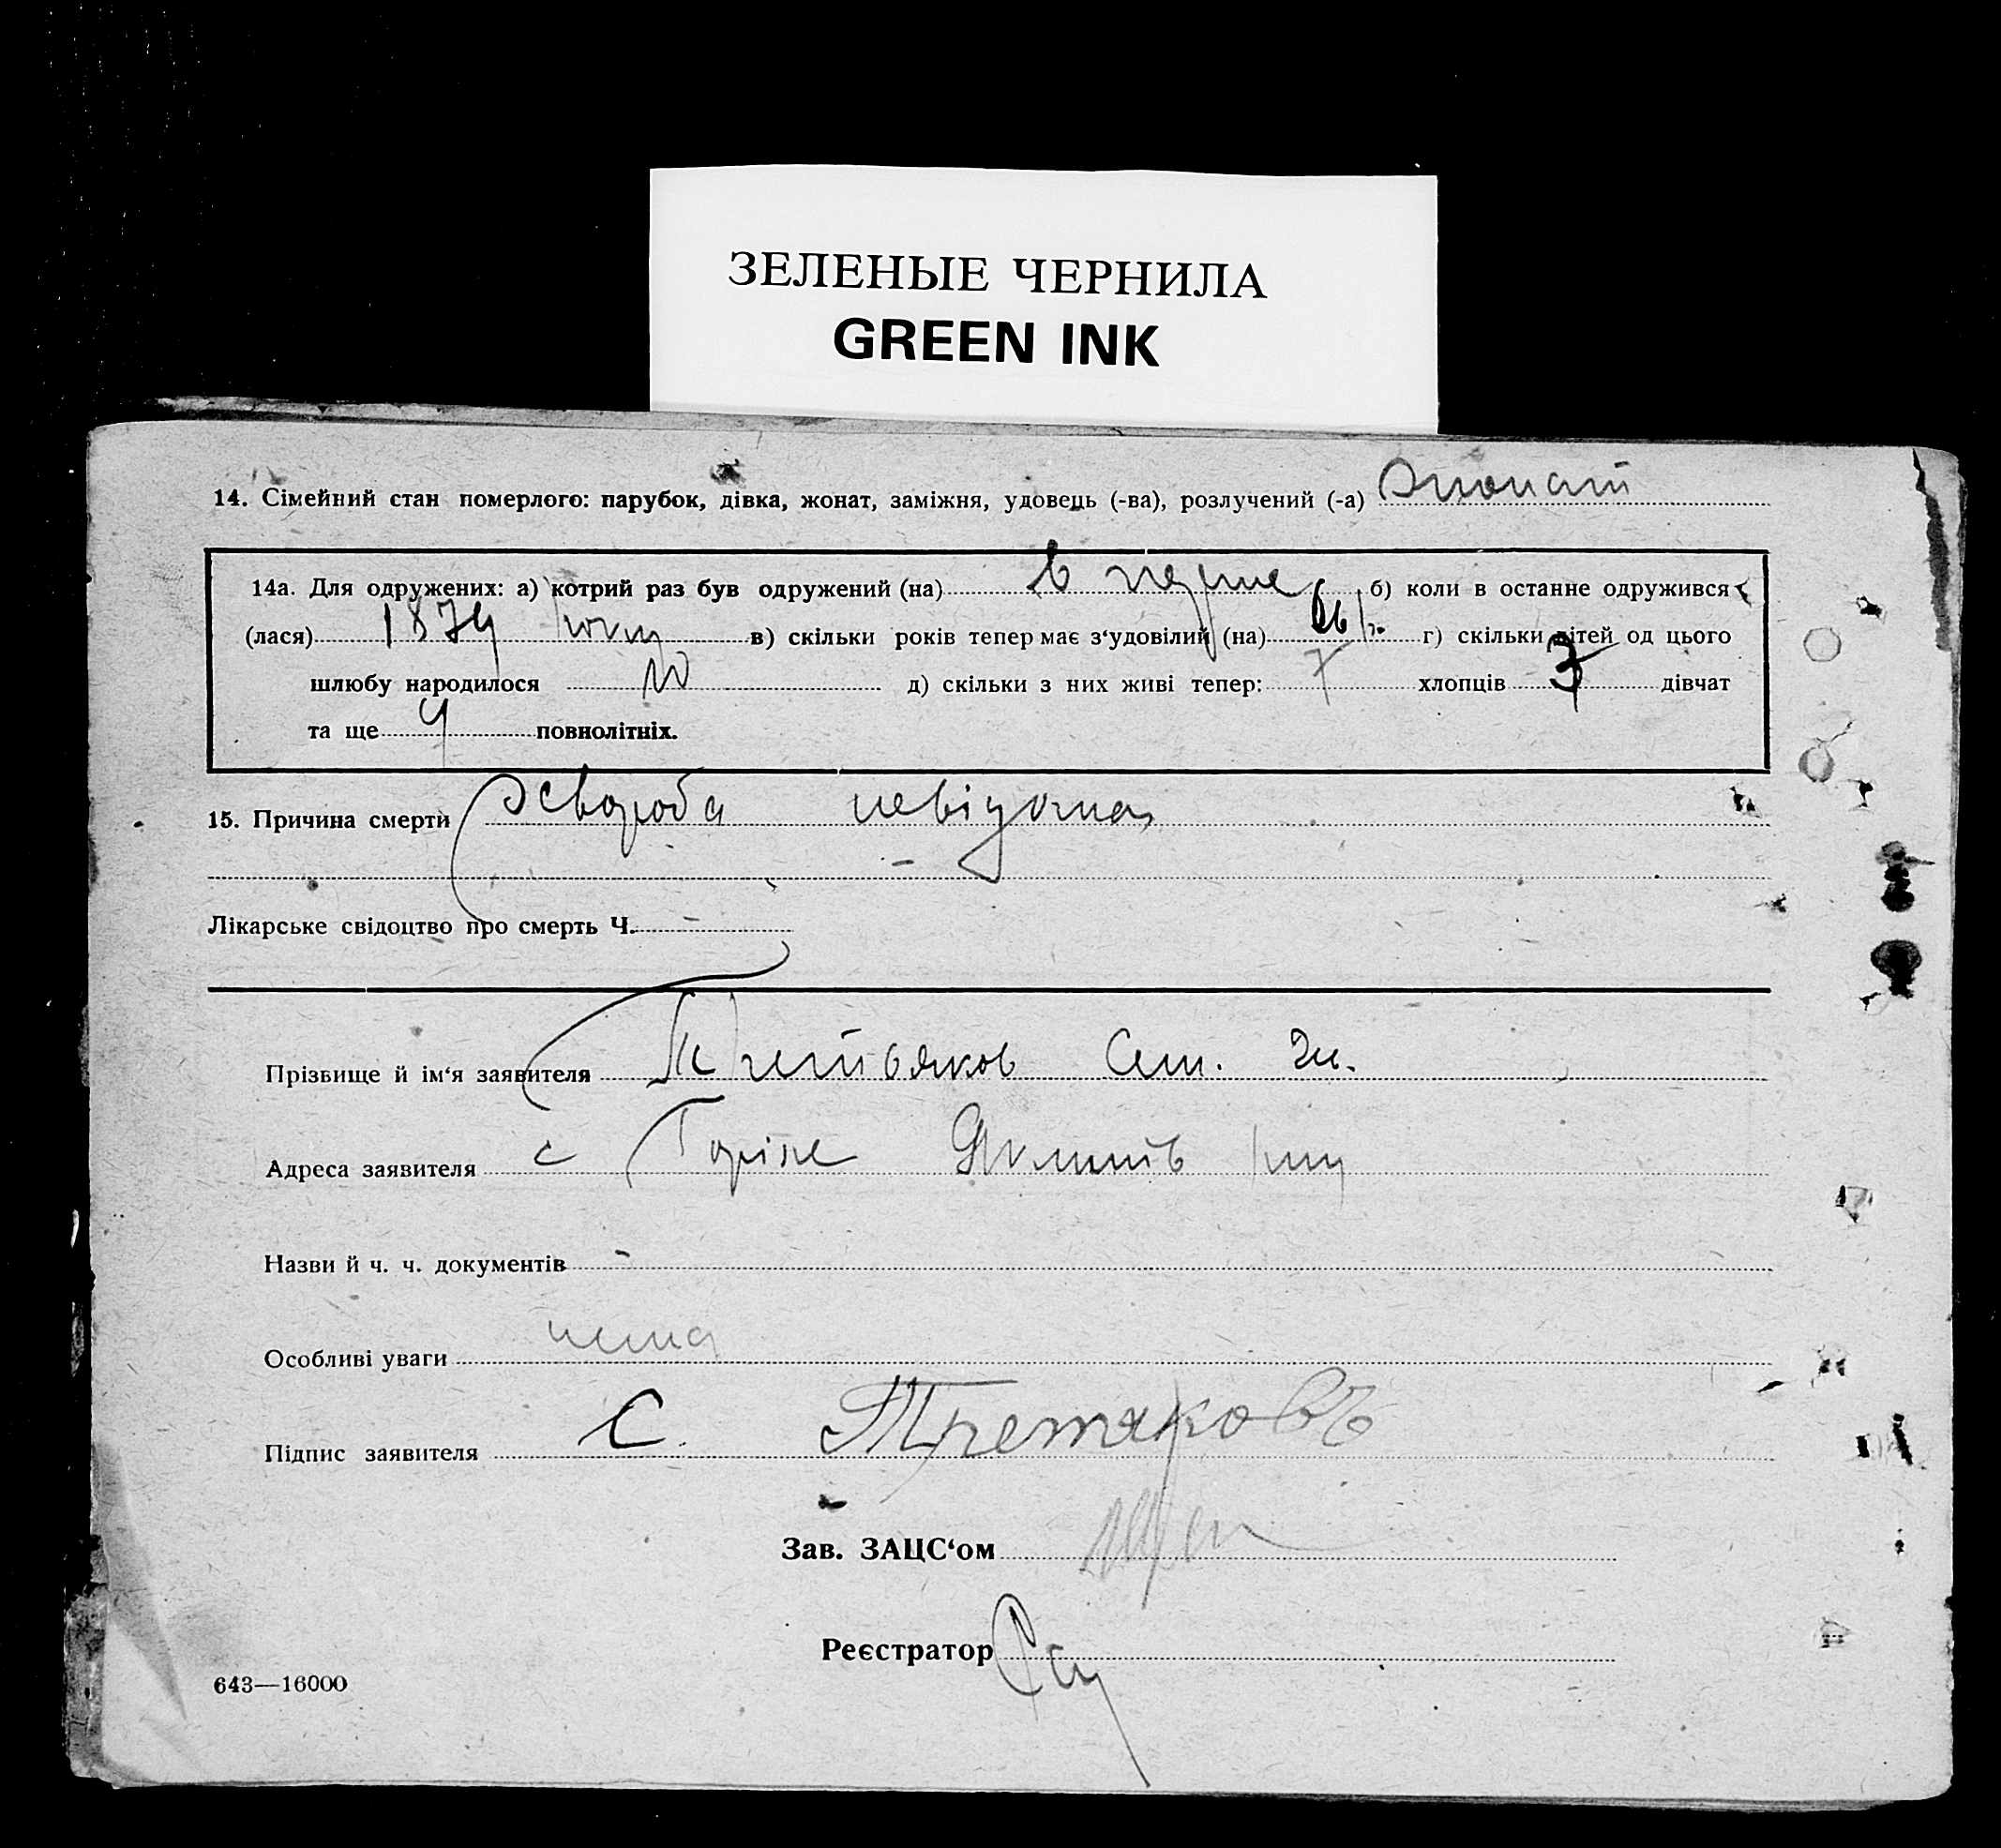 ЗЕЛЕНЫЕ ЧЕРНИЛА
GREEN INK
14. Сімейний стан померлого: парубок, дівка, жонат, заміжня, удовець (-ва), розлучений (-а) жонат
14а. Для одружених: а) котрий раз був одружений (на) в перше б) коли в останне одружився
(лася) 1879 року в) скільки років тепер має з‘удовілий (на) г) скільки дітей од цього
шлюбу народилося 10 д) скільки з них живі тепер: 7 хлопців 3 дівчат
та ще 9 повнолітніх.
15. Причина смерти Хвороба невідома
Лікарське свідоцтво про смерть Ч. -
Прізвище й ім‘я заявителя Третьяков
Адреса заявителя с
Назви й ч. ч. документів -
Особливі уваги нема
Підпис заявителя С. Третяковъ
Зав. ЗАЦС‘ом
Реєстратор
643—16000